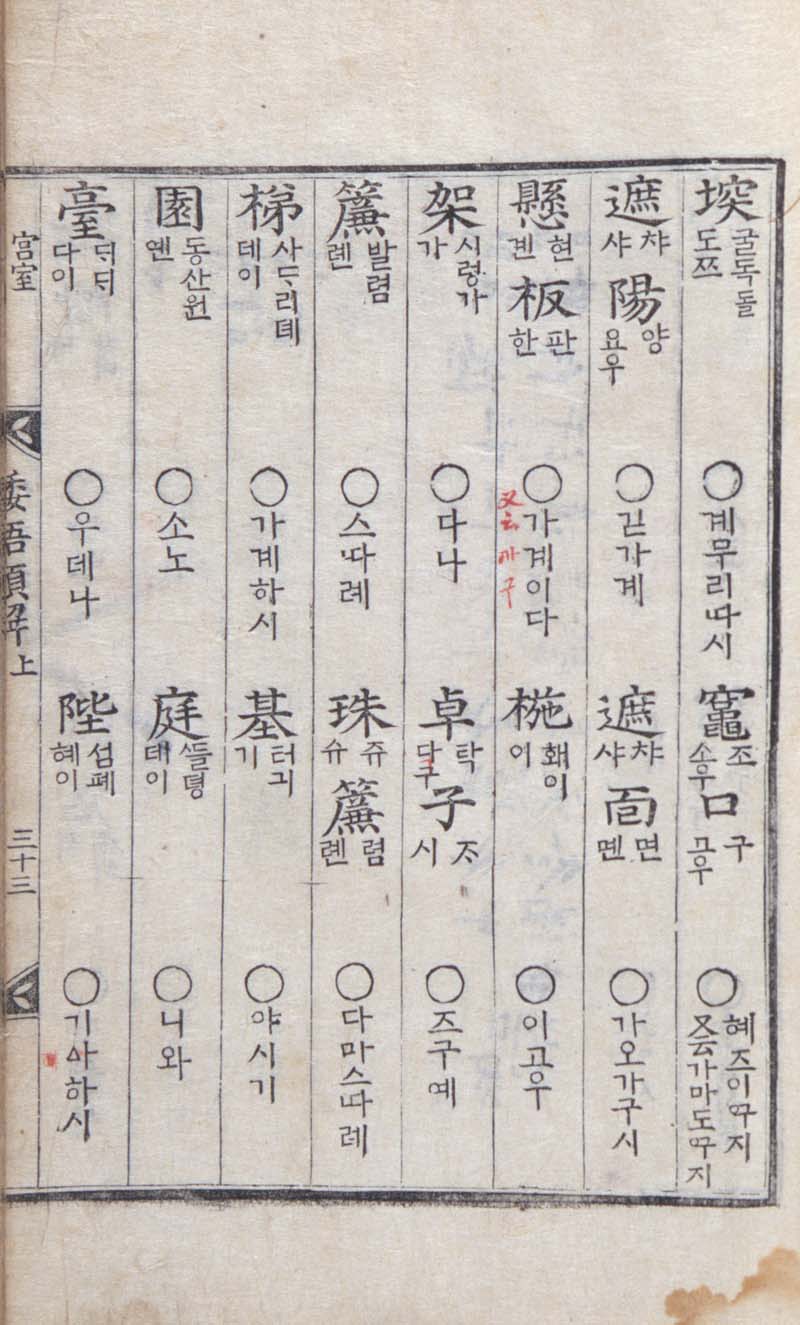 堗 굴독돌 도쯔 ○계무리ᄯᅡ시 竈 조 소우 口 구 ᄭᅩ우 ○혜즈이ᄭᅮ지 又云가마도ᄭᅮ지
遮 챠 샤 陽 양 요우 ○긷가계 遮 챠 샤 面 면 멘 ○가오가구시
懸 현 겐 板 판 한 ○가계이다 椸 홰이 이 ○이고우
架 시렁가 가 ○다나 卓 탁 다구 子 ᄌᆞ 시 ○즈구예
簾 발렴 렌 ○스ᄯᅡ례 珠 쥬 슈 簾 렴 롄 ○다마스ᄯᅡ례
梯 사ᄃᆞ리뎨 데이 ○가계하시 基 터긔 기 ○야시기
園 동산원 옌 ○소노 庭 ᄯᅳᆯ뎡 데이 ○니와
臺 다이 ○우데나 陛 섬폐 혜이 ○하시
宮室 倭語類解 上 三十三